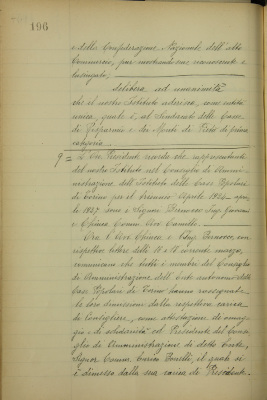 196
e della Confederazione Nazionale dell'alto
Commercio, pur mostrandosene riconoscente e
lusingato,
delibera ad unanimità
che il nostro Istituto aderisca, come entità
unica, quale è, al Sindacato delle Casse
di Risparmio e dei Monti di Pietà di prima
categoria.
9 = L'On. Presidente ricorda che rappresentanti
del nostro Istituto nel Consiglio di Ammini-
strazione dell'Istituto delle Case Popolari
di Torino per il triennio Aprile 1924 - apri-
le 1927 sono i Signori Ing. Giovanni
e Chiesa Comm. Avv. Camillo.
Ora l'Avv. Chiesa e l'Ing. con
rispettive lettere delli 16 e 17 corrente marzo,
comunicano che tutti i membri del Consiglio
di Amministrazione dell'Ente autonomo delle
Case Popolari di Torino hanno rassegnate
le loro dimissioni dalla rispettiva carica
di Consigliere, come attestazione di omag-
gio e di solidarietà col Presidente del Consi-
glio di Amministrazione di detto Ente,
Signor Comm. Enrico Bonelli, il quale si
è dimesso dalla sua carica di Presidente.